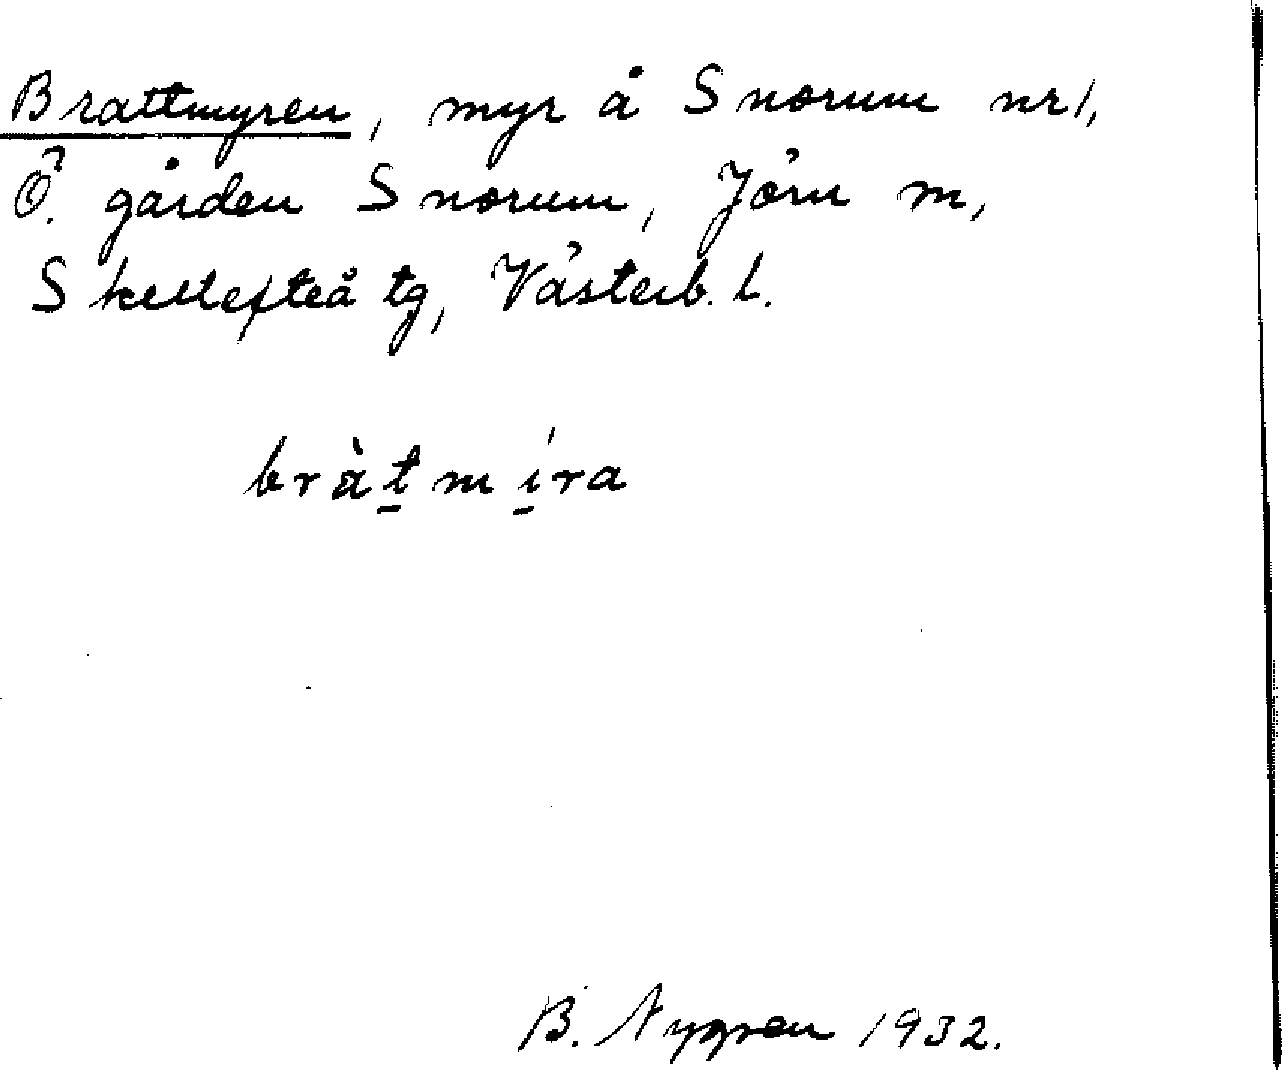 Brattmyren, myr å Snorum nr 1,
Ö. gården Snorum, Jörn m,
Skellefteå tg, Västerb. l.
bràt̠mí̠ra
B. Nygren 1932.